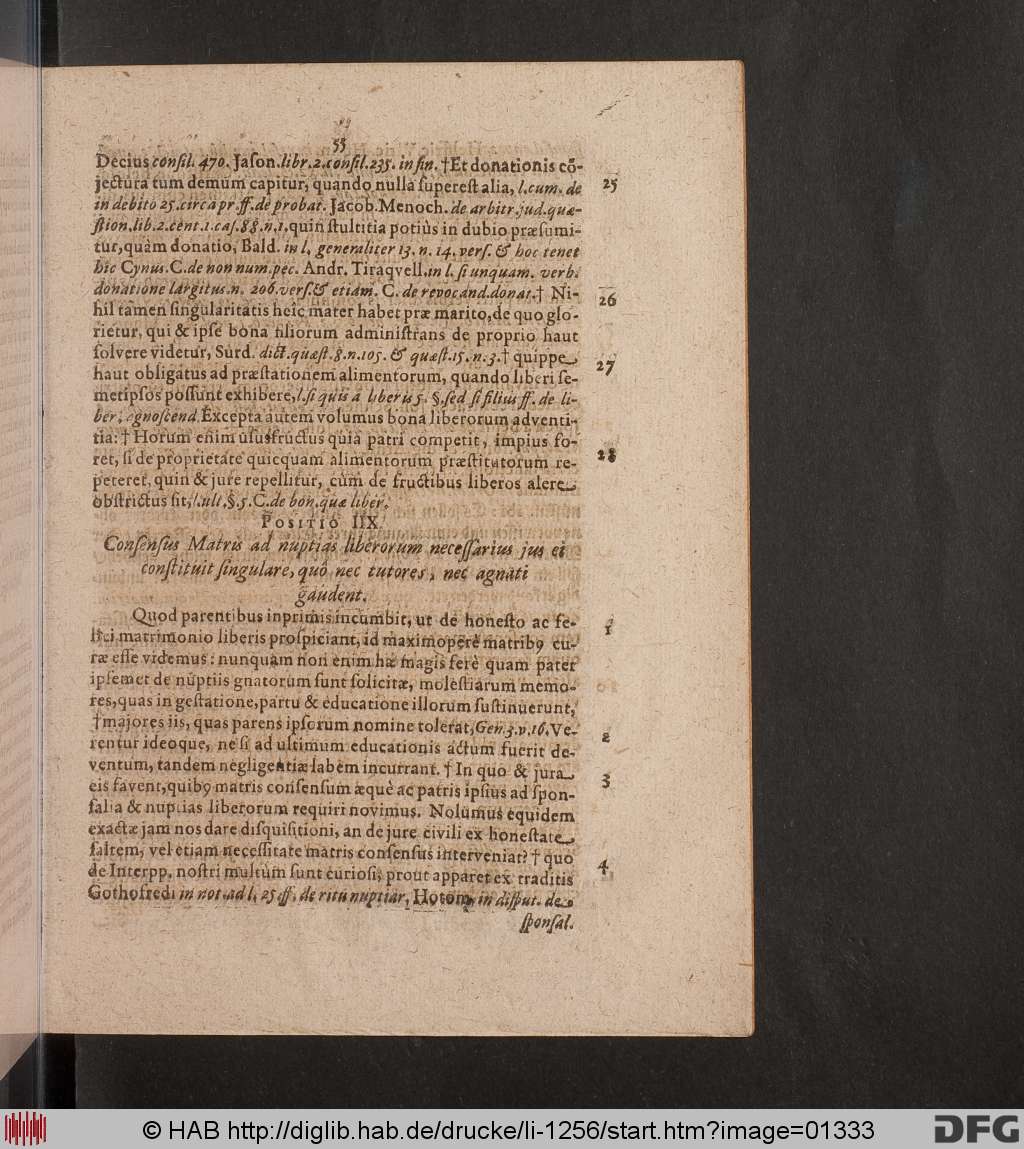 53
Decius consil. 470. Jason. libr. 2. consil. 235. in fin. † Et donationis cõ-
jectura tum demum capitur, quando nulla superest alia, l. cum. de 25
in debito 25. circa pr. ff. de probat. Jacob. Menoch. de arbitr. jud. quæ-
stion. lib. 2. cent. 1. cas. 88. n. 1, quin stultitia potiùs in dubio præsumi-
tur, quàm donatio, Bald. in l. generaliter 13. n. 14. vers. & hoc tenet
hic Cynus. C. de non num. pec. Andr. Tiraqvell. in l. si unquam. verb.
donatione largitus. n. 206. vers. & etiam. C. de revocand. donat. † Ni- 26
hil tamen singularitatis heîc mater habet præ marito, de quo glo-
rietur, qui & ipse bona filiorum administrans de proprio haut
solvere videtur, Surd. dict. quæst. 8. n. 105. & quæst. 15. n. 3. † quippe 27
haut obligatus ad præstationem alimentorum, quando liberi se-
metipsos possunt exhibere, l. si quis à liberis 5. §. sed si filius ff. de li-
ber. agnoscend. Excepta autem volumus bona liberorum adventi-
tia: † Horum enim ususfructus quia patri competit, impius fo- 28
ret, si de proprietate quicquam alimentorum præstitutorum re-
peteret, quin & jure repellitur, cùm de fructibus liberos alere
obstrictus sit, l. ult. §. 5. C. de bon. quæ liber.
POSITIO IIX.
Consensus Matris ad nuptias liberorum necessarius jus ei
constituit singulare, quô nec tutores, nec agnati
gaudent.
Quod parentibus inprimis incumbit, ut de honesto ac fe- 1
lici matrimonio liberis prospiciant, id maximoperè matribꝰ cu-
ræ esse videmus: nunquam non enim hæ magis ferè quam pater
ipsemet de nuptiis gnatorum sunt solicitæ, molestiarum memo-
res, quas in gestatione, partu & educatione illorum sustinuerunt,
† majores iis, quas parens ipsorum nomine tolerat, Gen. 3. v. 16. Ve- 2
rentur ideoque, ne si ad ultimum educationis actum fuerit de-
ventum, tandem negligentiæ labem incurrant. † In quo & jura 3
eis favent, quibꝰ matris consensum æquè ac patris ipsius ad spon-
salia & nuptias liberorum requiri novimus. Nolumus equidem
exactæ jam nos dare disquisitioni, an de jure civili ex honestate
saltem, vel etiam necessitate matris consensus interveniat? † quo 4
de Interpp. nostri multùm sunt curiosi, prout apparet ex traditis
Gothofredi in not. ad l. 25. ff. de ritu nuptiar, Hotom. in disput. de
sponsal.
© HAB http://diglib.hab.de/drucke/li-1256/start.htm?image=01333
DFG